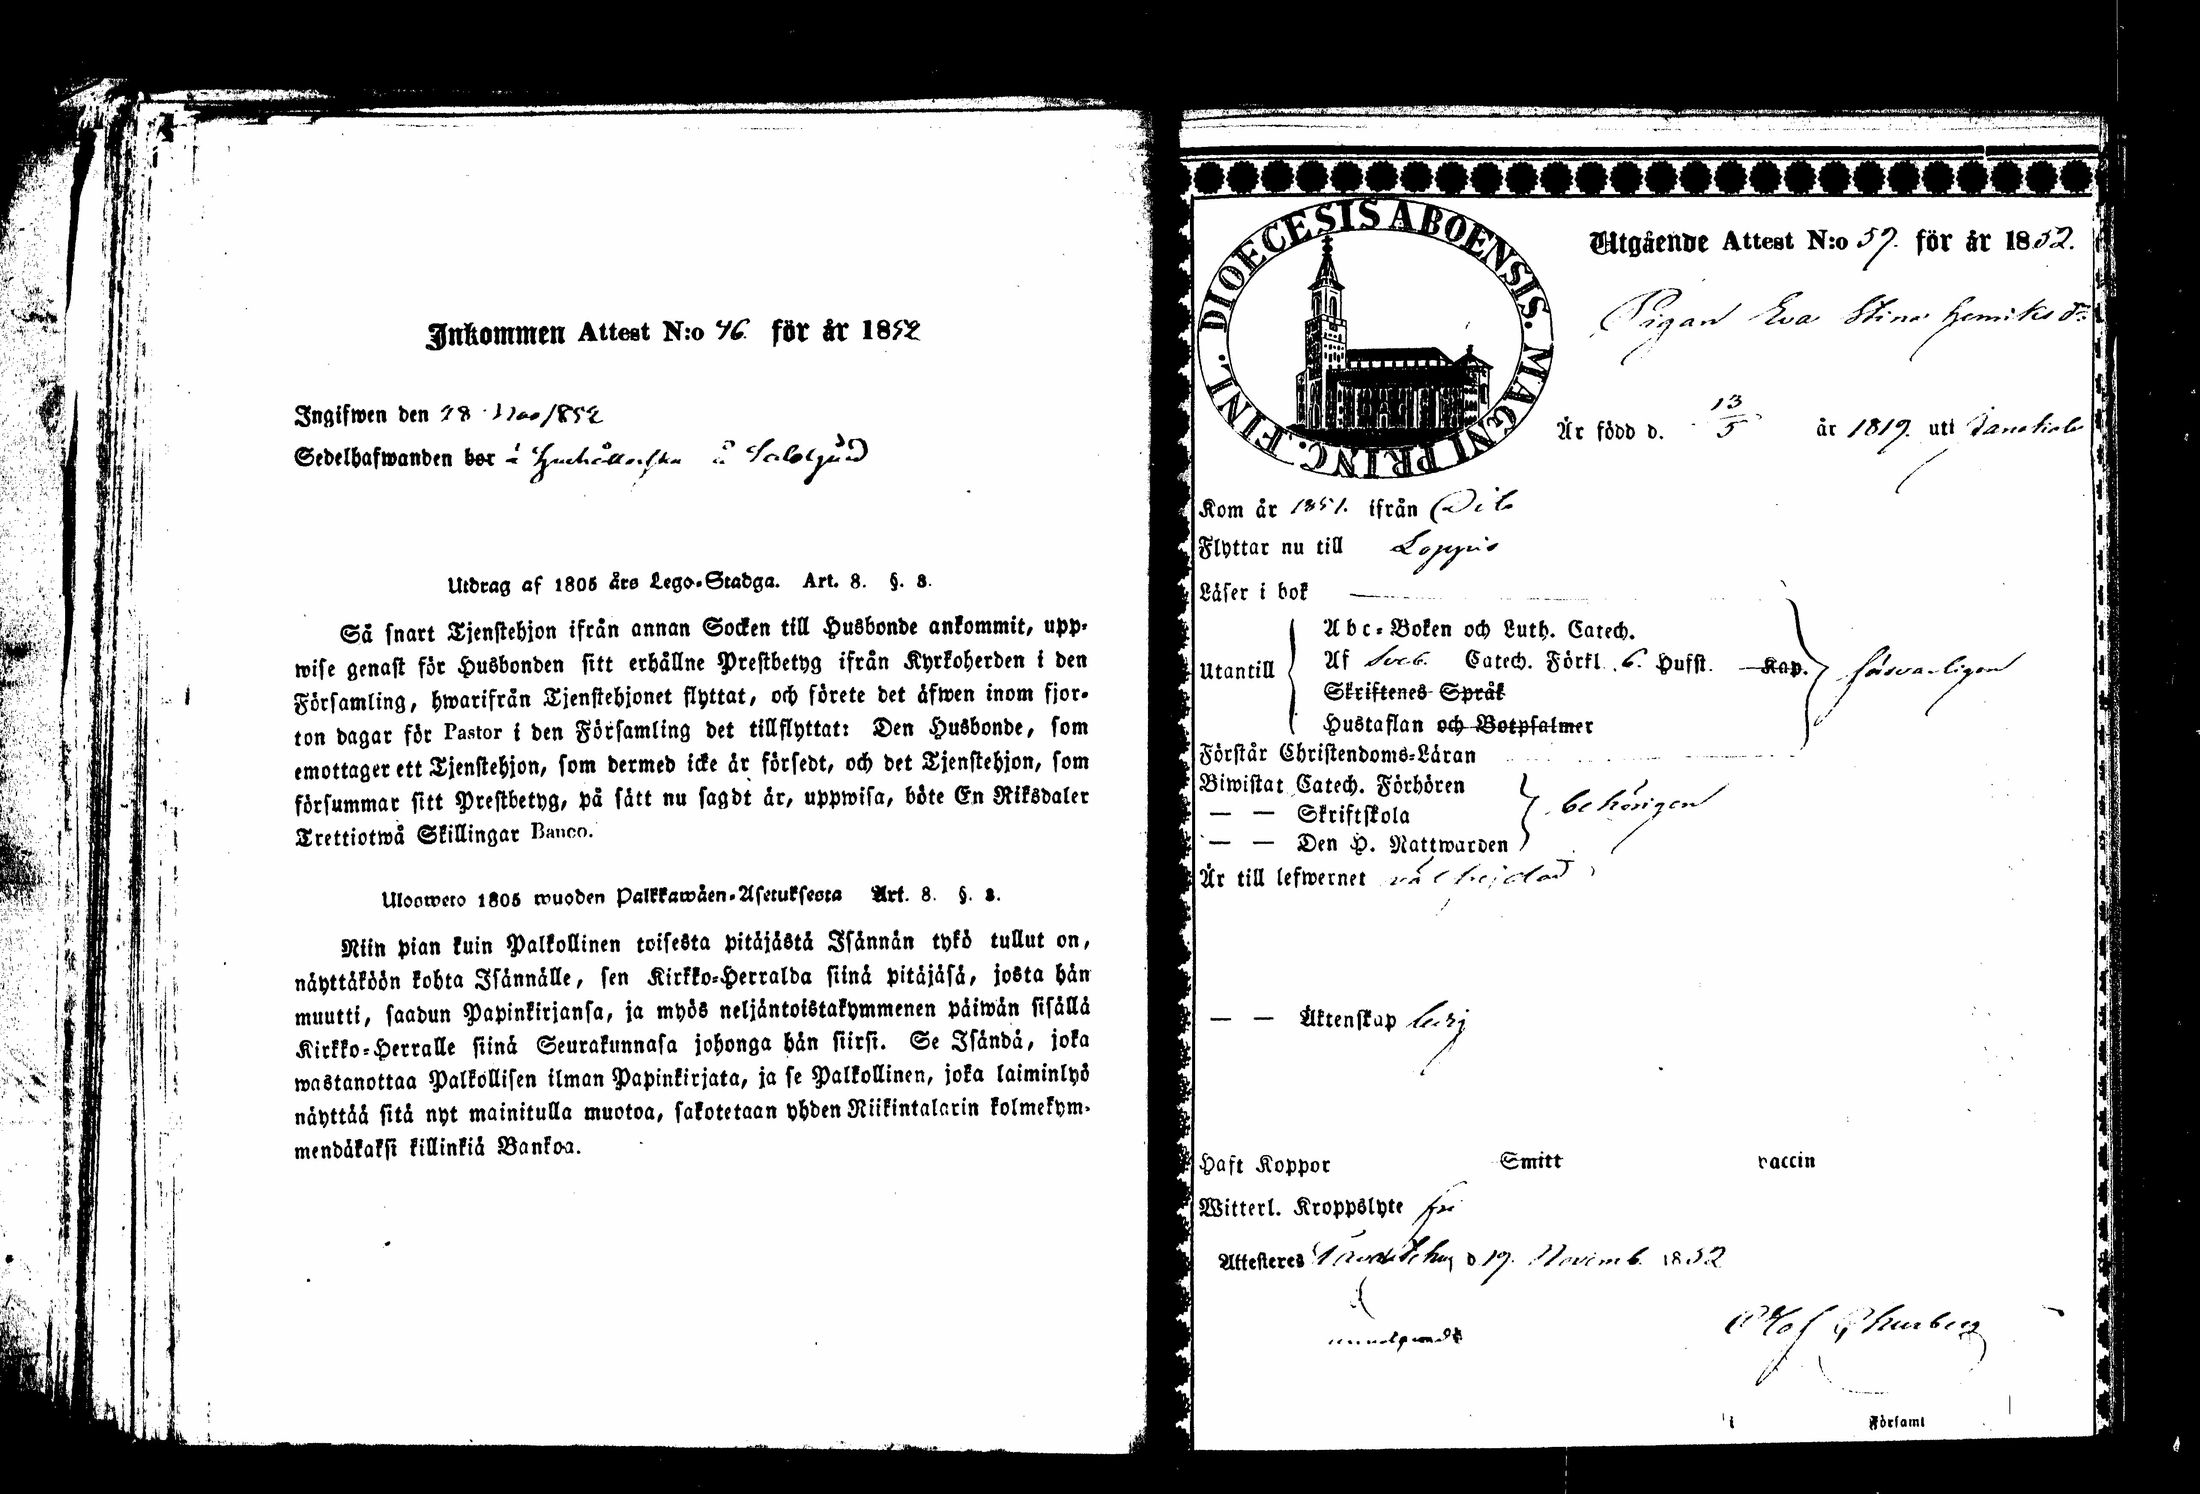 Inkommen Attest N:o 46. för år 1852
Ingifwen den 28 Nov 1852
Sedelhafwanden bor å Hushållerska å
Utdrag af 1805 års Lego-Stadga. Art. 8. §. 3.
Så snart Tjenstehjon ifrån annan Socken till Husbonde ankommit, upp-
wise genast för Husbonden sitt erhållne Prestbetyg ifrån Kyrkoherden i den
Församling, hwarifrån Tjenstehjonet flyttat, och förete det äfwen inom fjor-
ton dagar för Pastor i den Församling det tillflyttat: Den Husbonde, som
emottager ett Tjenstehjon, som dermed icke är försedt, och det Tjenstehjon, som
försummar sitt Prestbetyg, på sätt nu sagdt är, uppwisa, böte En Riksdaler
Trettiotwå Skillingar Banco.
Ulosweto 1805 wuoden Palkkawäen-Asetuksesta Art. 8. §. 3.
Niin pian kuin Palkollinen toisesta pitäjästä Isännän tykö tullut on,
näyttäköön kohta Isännälle, sen Kirkko-Herralda siinä pitäjäsä, josta hän
muutti, saadun Papinkirjansa, ja myös neljäntoistakymmenen päiwän sisällä
Kirkko-Herralle siinä Seurakunnasa johonga hän siirsi. Se Isändä, joka
wastanottaa Palkollisen ilman Papinkirjata, ja se Palkollinen, joka laiminlyö
näyttää sitä nyt mainitulla muotoa, sakotetaan yhden Riikintalarin kolmekym-
mendäkaksi killinkiä Bankoa.
DIOECESIS ABOENSIS. MAGNI PRINC. FINL.
Utgående Attest N:o 59. för år 1852.
Pigan Eva Stina Henriksdr
Är född d. 13/5 år 1819. uti Janakala
Kom år 1851. ifrån
Flyttar nu till Loppis
Läser i bok
Utantill
Abc-Boken och Luth. Catech.
Af Sveb. Catech. Förkl. 6. Hufst. Kap. försvarligen
Skriftenes Språk
Hustaflan och Botpsalmer
Förstår Christendoms-Läran
Biwistat Catech. Förhören
— — Skriftskola behörigen
— — Den H. Nattwarden
Är till lefwernet välfrejdad
— — Äktenskap ledig
Haft Koppor Smitt vaccin
Witterl. Kroppslyte fri
Attesteres Tavastehus d 19. Novemb. 1852
Olof
i Församl